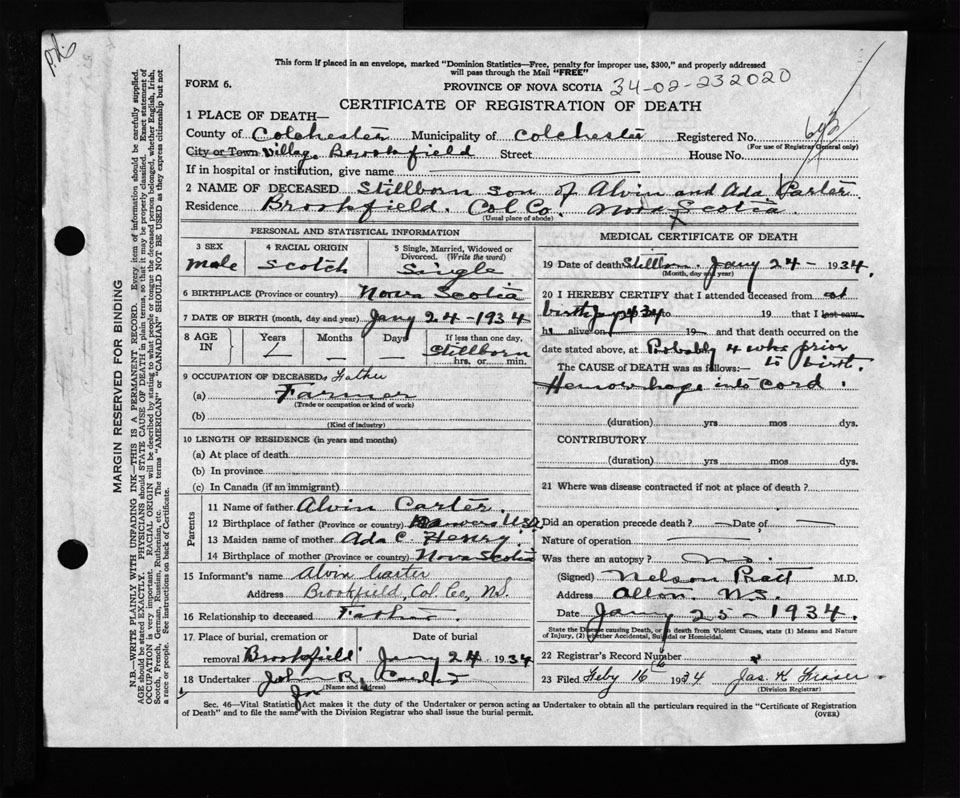 This form if placed in an envelope, marked "Dominion Statistics—Free, penalty for improper use, $300," and properly addressed
will pass through the Mail "FREE"
FORM 6.
PROVINCE OF NOVA SCOTIA 34-02-232020
CERTIFICATE OF REGISTRATION OF DEATH
1 PLACE OF DEATH—
County of Colchester Municipality of Colchester Registered No.
(For use of Registrar General only)
City or Town Village Brookfield Street House No.
If in hospital or institution, give name
2 NAME OF DECEASED Stillborn son of Alvin and Ada Carter
Residence Brookfield. Col Co. Nova Scotia
(Usual place of abode)
PERSONAL AND STATISTICAL INFORMATION
3 SEX
male
4 RACIAL ORIGIN
Scotch
5 Single, Married, Widowed or
Divorced. (Write the word)
Single
6 BIRTHPLACE (Province or country) Nova Scotia
7 DATE OF BIRTH (month, day and year) Jany 24-1934
8 AGE IN
Years
Months
Days
If less than one day,
Stillborn
hrs. or min.
9 OCCUPATION OF DECEASED Father
(a) Farmer
(Trade or occupation or kind of work)
(b)
(Kind of industry)
10 LENGTH OF RESIDENCE (in years and months)
(a) At place of death
(b) In province
(c) In Canada (if an immigrant)
Parents
11 Name of father Alvin Carter
12 Birthplace of father (Province or country) Danvers USA
13 Maiden name of mother Ada C Henry
14 Birthplace of mother (Province or country) Nova Scotia
15 Informant's name Alvin Carter
Address Brookfield, Col. Co., N.S.
16 Relationship to deceased Father
17 Place of burial, cremation or
removal Brookfield
Date of burial
Jany 24 1934
18 Undertaker John R, Carter
(Name and address)
MEDICAL CERTIFICATE OF DEATH
19 Date of death Stillbn. Jany 24- 1934.
(Month, day and year)
20 I HEREBY CERTIFY that I attended deceased from at
birth to 19 that I last saw
h alive on 19 and that death occurred on the
date stated above, at Probably 4 wks prior
to birth.
The CAUSE OF DEATH was as follows:—
Hemorrhage into cord.
(duration) yrs mos dys.
CONTRIBUTORY
(duration) yrs mos dys.
21 Where was disease contracted if not at place of death?
Did an operation precede death? — Date of, —
Nature of operation
Was there an autopsy? no.
(Signed) Nelson Pratt M.D.
Address N.S.
Date Jany 25-1934.
State the Disease causing Death, or in death from Violent Causes, state (1) Means and Nature
of Injury, (2) whether Accidental, Suicidal or Homicidal.
22 Registrar's Record Number 6
23 Filed Feby 16 1934 Jas. K Fraser
(Division Registrar)
Sec. 46—Vital Statistics Act makes it the duty of the Undertaker or person acting as Undertaker to obtain all the particulars required in the "Certificate of Registration
of Death" and to file the same with the Division Registrar who shall issue the burial permit.
(OVER)
MARGIN RESERVED FOR BINDING
N.B.—WRITE PLAINLY WITH UNFADING INK—THIS IS A PERMANENT RECORD. Every item of information should be carefully supplied.
AGE should be stated EXACTLY. PHYSICIANS should STATE CAUSE OF DEATH in plain terms, so that it may be properly classified. Exact statement of
OCCUPATION is very important. RACIAL ORIGIN will be described by stating to what people or tongue the deceased person belonged, whether English, Irish,
Scotch, French, German, Russian, Ruthenian, etc. The terms "AMERICAN" or "CANADIAN" SHOULD NOT BE USED as they express citizenship but not
a race or people. See instructions on back of Certificate.